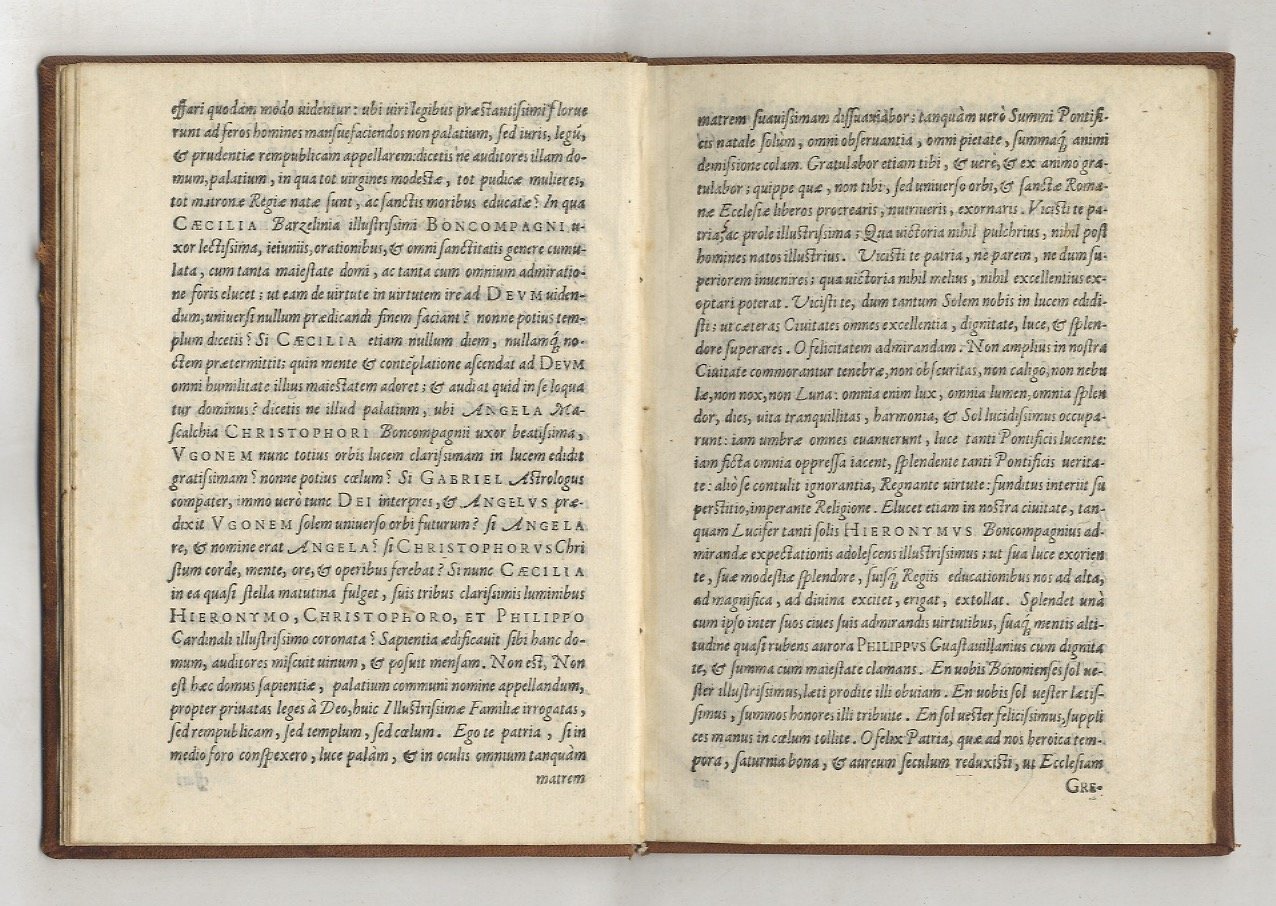 effari quodam modo uidentur: ubi uiri legibus præstantissimi florue
runt ad feros homines mansuefaciendos non palatium, sed iuris, legū,
& prudentiæ rempublicam appellarem: dicetis ne auditores illam do-
mum, palatium, in qua tot virgines modestæ, tot pudicæ mulieres,
tot matronæ Regiæ natæ sunt, ac sanctis moribus educatæ? In qua
CÆCILIA Barzelinia illustrissimi BONCOMPAGNI u-
xor lectissima, ieiuniis, orationibus, & omni sanctitatis genere cumu-
lata, cum tanta maiestate domi, ac tanta cum omnium admiratio-
ne foris elucet; ut eam de uirtute in uirtutem ire ad DEVM uiden-
dum, uniuersi nullum prædicandi finem faciant? nonne potius tem-
plum dicetis? Si CÆCILIA etiam nullum diem, nullamq́; no-
ctem prætermittit: quin mente & contēplatione ascendat ad DEVM
omni humilitate illius maiestatem adoret; & audiat quid in se loqua
tur dominus? dicetis ne illud palatium, ubi ANGELA Ma-
scalchia CHRISTOPHORI Boncompagnii uxor beatissima,
VGONEM nunc totius orbis lucem clarissimam in lucem edidit
gratissimam? nonne potius cœlum? Si GABRIEL Astrologus
compater, immo uerò tunc DEI interpres, & ANGELVS præ-
dixit VGONEM solem uniuerso orbi futurum? si ANGELA
re, & nomine erat ANGELA? si CHRISTOPHORVS Chri
stum corde, mente, ore, & operibus ferebat? Si nunc CÆCILIA
in ea quasi stella matutina fulget, suis tribus clarissimis luminibus
HIERONYMO, CHRISTOPHORO, ET PHILIPPO
Cardinali illustrissimo coronata? Sapientia ædificauit sibi hanc do-
mum, auditores miscuit uinum, & posuit mensam. Non est, Non
est hæc domus sapientiæ, palatium communi nomine appellandum,
propter priuatas leges à Deo, huic Illustrissimæ Familiæ irrogatas,
sed rempublicam, sed templum, sed cœlum. Ego te patria, si in
medio foro conspexero, luce palàm, & in oculis omnium tanquàm
matrem
matrem suauissimam dissuauiabor; tanquàm uerò Summi Pontifi-
cis natale solùm, omni obseruantia, omni pietate, summaq́; animi
demissione colam. Gratulabor etiam tibi, & uerè, & ex animo gra-
tulabor; quippe quæ, non tibi, sed uniuerso orbi, & sanctæ Roma-
næ Ecclesiæ liberos procrearis, nutriueris, exornaris. Vicisti te pa-
tria, ac prole illustrissima; Qua uictoria nihil pulchrius, nihil post
homines natos illustrius. Vicisti te patria, ne parem, ne dum su-
periorem inuenires; qua uictoria nihil melius, nihil excellentius ex-
optari poterat. Vicisti te, dum tantum Solem nobis in lucem edidi-
sti; ut cæteras Ciuitates omnes excellentia, dignitate, luce, & splen-
dore superares. O felicitatem admirandam. Non amplius in nostra
Ciuitate commorantur tenebræ, non obscuritas, non caligo, non nebu
læ, non nox, non Luna: omnia enim lux, omnia lumen, omnia splen
dor, dies, uita tranquillitas, harmonia, & Sol lucidissimus occupa-
runt: iam umbræ omnes euanuerunt, luce tanti Pontificis lucente:
iam ficta omnia oppressa iacent, splendente tanti Pontificis uerita-
te: aliò se contulit ignorantia, Regnante uirtute: funditus interiit su
perstitio, imperante Religione. Elucet etiam in nostra ciuitate, tan-
quam Lucifer tanti solis HIERONYMVS Boncompagnius ad-
mirandæ expectationis adolescens illustrissimus; ut sua luce exorien
te, suæ modestiæ splendore, suisq́; Regiis educationibus nos ad alta,
ad magnifica, ad diuina excitet, erigat, extollat. Splendet unà
cum ipso inter suos ciues suis admirandis uirtutibus, suaq́; mentis alti-
tudine quasi rubens aurora PHILIPPVS Guastauillanius cum dignita
te, & summa cum maiestate clamans. En uobis Bononienses sol ue-
ster illustrissimus, læti prodite illi obuiam. En uobis sol uester lætis-
simus, summos honores illi tribuite. En sol uester felicissimus, suppli
ces manus in cœlum tollite. O felix Patria, quæ ad nos heroica tem-
pora, saturnia bona, & aureum seculum reduxisti, ut Ecclesiam
GRE-